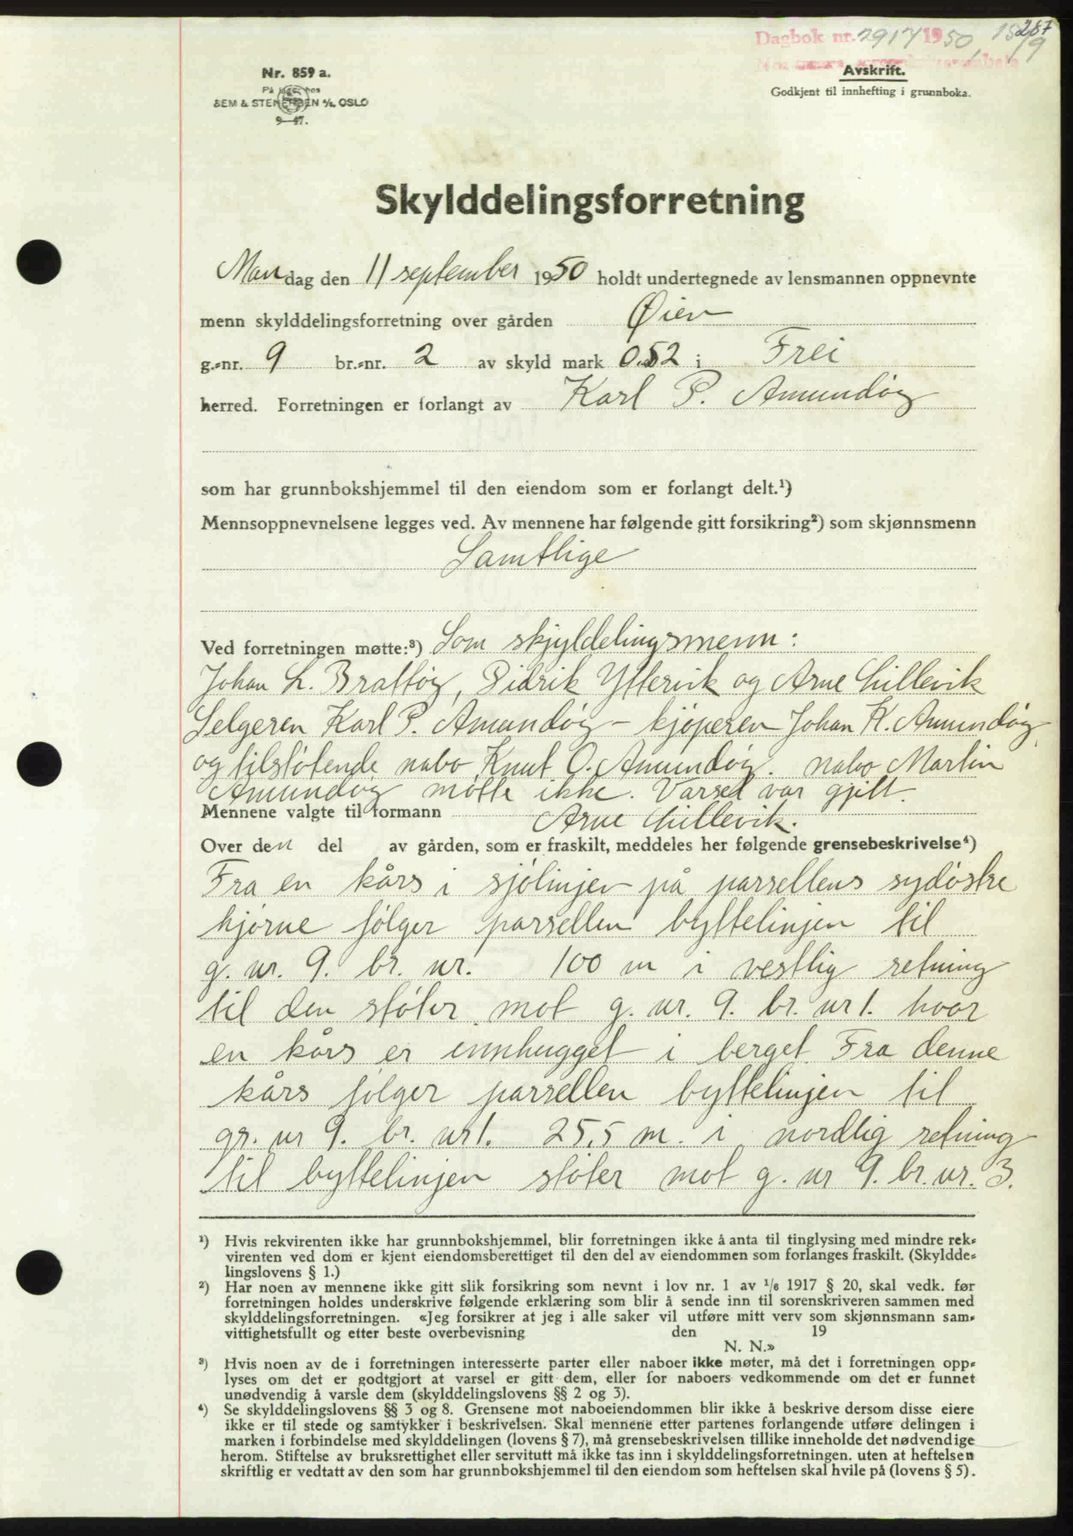 287
Dagbok nr. 2917 1950, 18/9
Nr. 859 a.
Avskrift.
På lager hos
SEM & STENERSEN A/S, OSLO
Godkjent til innhefting i grunnboka.
9—47.
Skylddelingsforretning
Mandag den 11 september 1950 holdt undertegnede av lensmannen oppnevnte
menn skylddelingsforretning over gården Øien
g.-nr. 9 br.-nr. 2 av skyld mark 0.52 i Frei
herred. Forretningen er forlangt av Karl P. Amundøy
som har grunnbokshjemmel til den eiendom som er forlangt delt.¹)
Mennsoppnevnelsene legges ved. Av mennene har følgende gitt forsikring²) som skjønnsmenn
Samtlige
Ved forretningen møtte:³) Som skjyldelingsmenn:
Johan L. Brattøy, Didrik Yttervik og Arne Lillevik
Selgeren Karl P. Amundøy – kjøperen Johan K. Amundøy,
og tilstøtende nabo Knut O. Amundøy. nabo Martin
Amundøy møtte ikke. Varsel var gjitt.
Mennene valgte til formann Arne Lillevik.
Over den del av gården, som er fraskilt, meddeles her følgende grensebeskrivelse⁴)
Fra en kårs i sjølinjen på parsellens sydøstre
hjørne følger parsellen byttelinjen til
g. nr. 9. br. nr. 100 m i vestlig retning
til den støter mot g. nr. 9. br. nr 1. hvor
en kårs er innhugget i berget. Fra denne
kårs følger parsellen byttelinjen til
gr. nr 9. br. nr 1. 25,5 m. i nordlig retning
til byttelinjen støter mot g. nr 9. br. nr. 3.
¹) Hvis rekvirenten ikke har grunnbokshjemmel, blir forretningen ikke å anta til tinglysing med mindre rek-
virenten ved dom er kjent eiendomsberettiget til den del av eiendommen som forlanges fraskilt. (Skyldde-
lingslovens § 1.)
²) Har noen av mennene ikke gitt slik forsikring som nevnt i lov nr. 1 av ¹/₆ 1917 § 20, skal vedk. før
forretningen holdes underskrive følgende erklæring som blir å sende inn til sorenskriveren sammen med
skylddelingsforretningen. «Jeg forsikrer at jeg i alle saker vil utføre mitt verv som skjønnsmann sam-
vittighetsfullt og etter beste overbevisning den 19
N. N.»
³) Hvis noen av de i forretningen interesserte parter eller naboer ikke møter, må det i forretningen opp-
lyses om det er godtgjort at varsel er gitt dem, eller for naboers vedkommende om det er funnet
unødvendig å varsle dem (skylddelingslovens §§ 2 og 3).
⁴) Se skylddelingslovens §§ 3 og 8. Grensene mot naboeiendommen blir ikke å beskrive dersom disse eiere
ikke er til stede og samtykker i beskrivelsen. Skal mennene etter partenes forlangende utføre delingen i
marken i forbindelse med skylddelingen (lovens § 7), må grensebeskrivelsen tillike inneholde det nødvendige
herom. Stiftelse av bruksrettighet eller servitutt må ikke tas inn i skylddelingsforretningen, uten at heftelsen
skriftlig er vedtatt av den som har grunnbokshjemmel til den eiendom som heftelsen skal hvile på (lovens § 5).